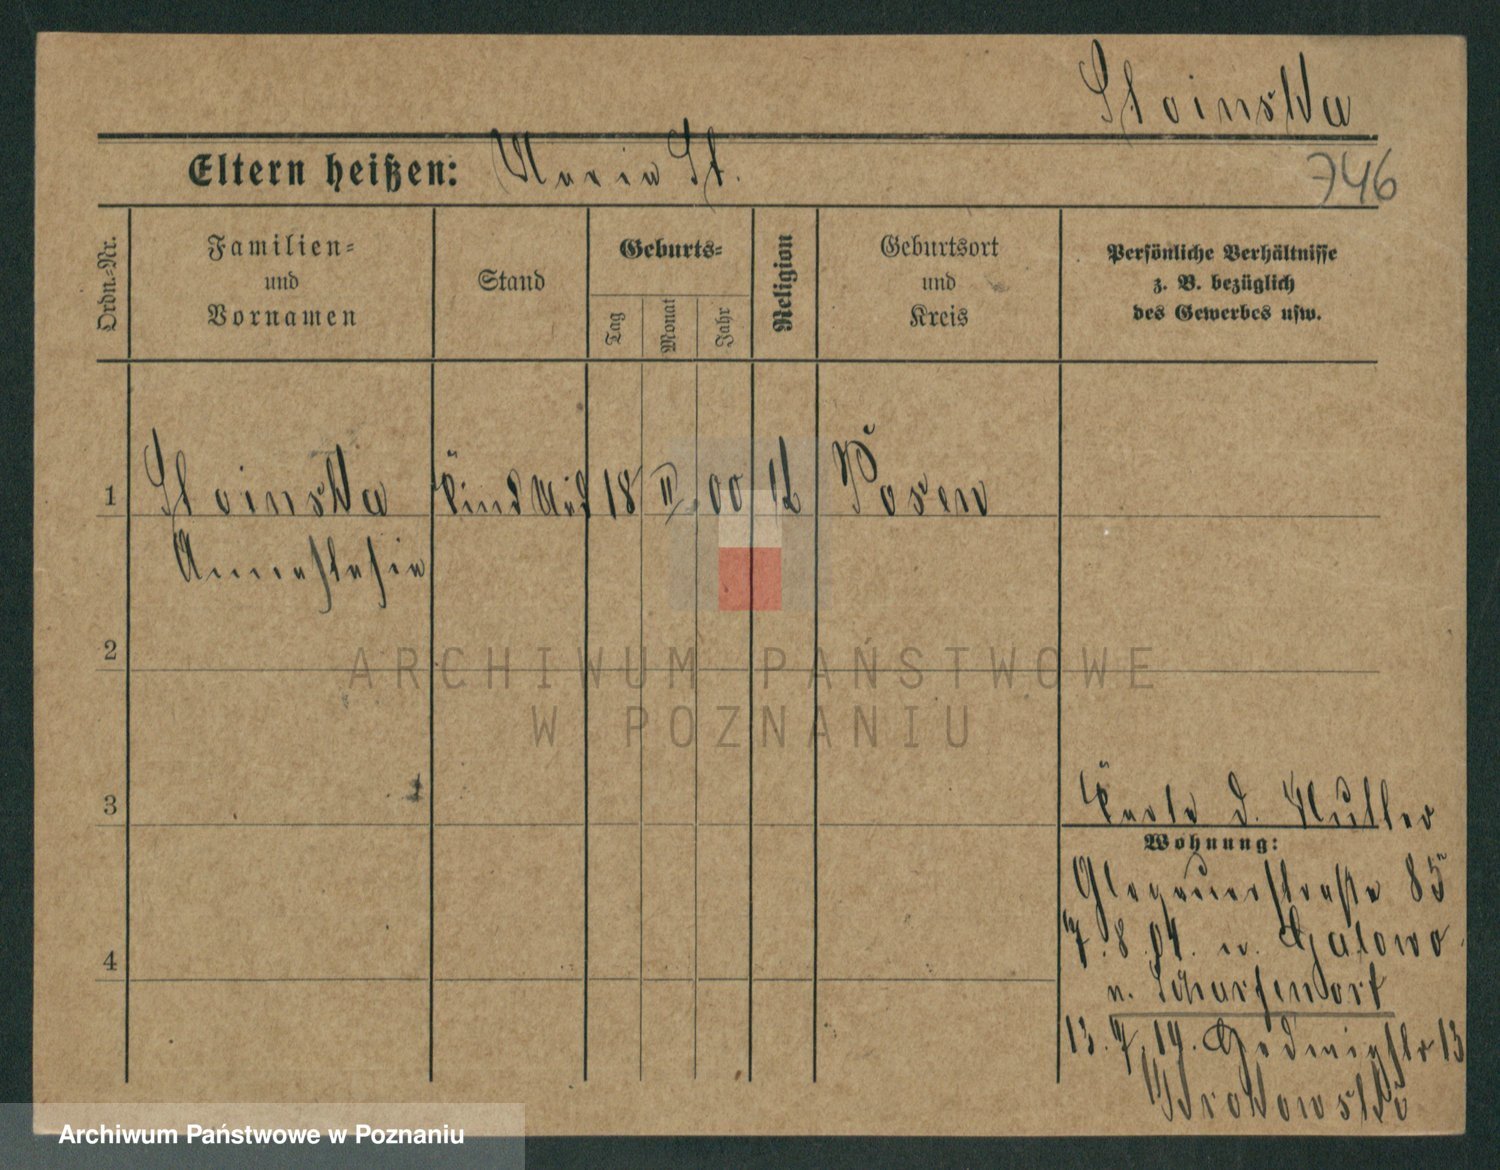 Stoinska
Eltern heißen: Maria St.
746
Ordn.-Nr.
Familien-
und
Vornamen
Stand
Geburts-
Tag
Monat
Jahr
Religion
Geburtsort
und
Kreis
Persönliche Verhältnisse
z. B. bezüglich
des Gewerbes usw.
1 Stoinska Kind 18 II 00 Posen
Annastasia
2
3
Karte d. Mutter
Wohnung:
Glogauerstraße 85
7.8.04. n. Galowo
n. Scharfenort
13.7.14. Hedwigstr 13
Brodowski
4
ARCHIWUM PAŃSTWOWE
W POZNANIU
Archiwum Państwowe w Poznaniu